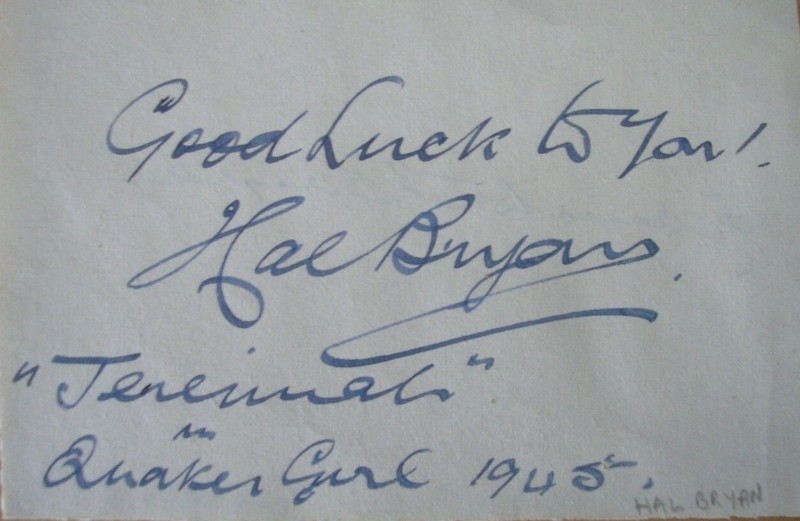 "Good Luck to You!.
Hal Bryan.
"Jeremiah"
in
Quaker Girl 1945.
HAL BRYAN